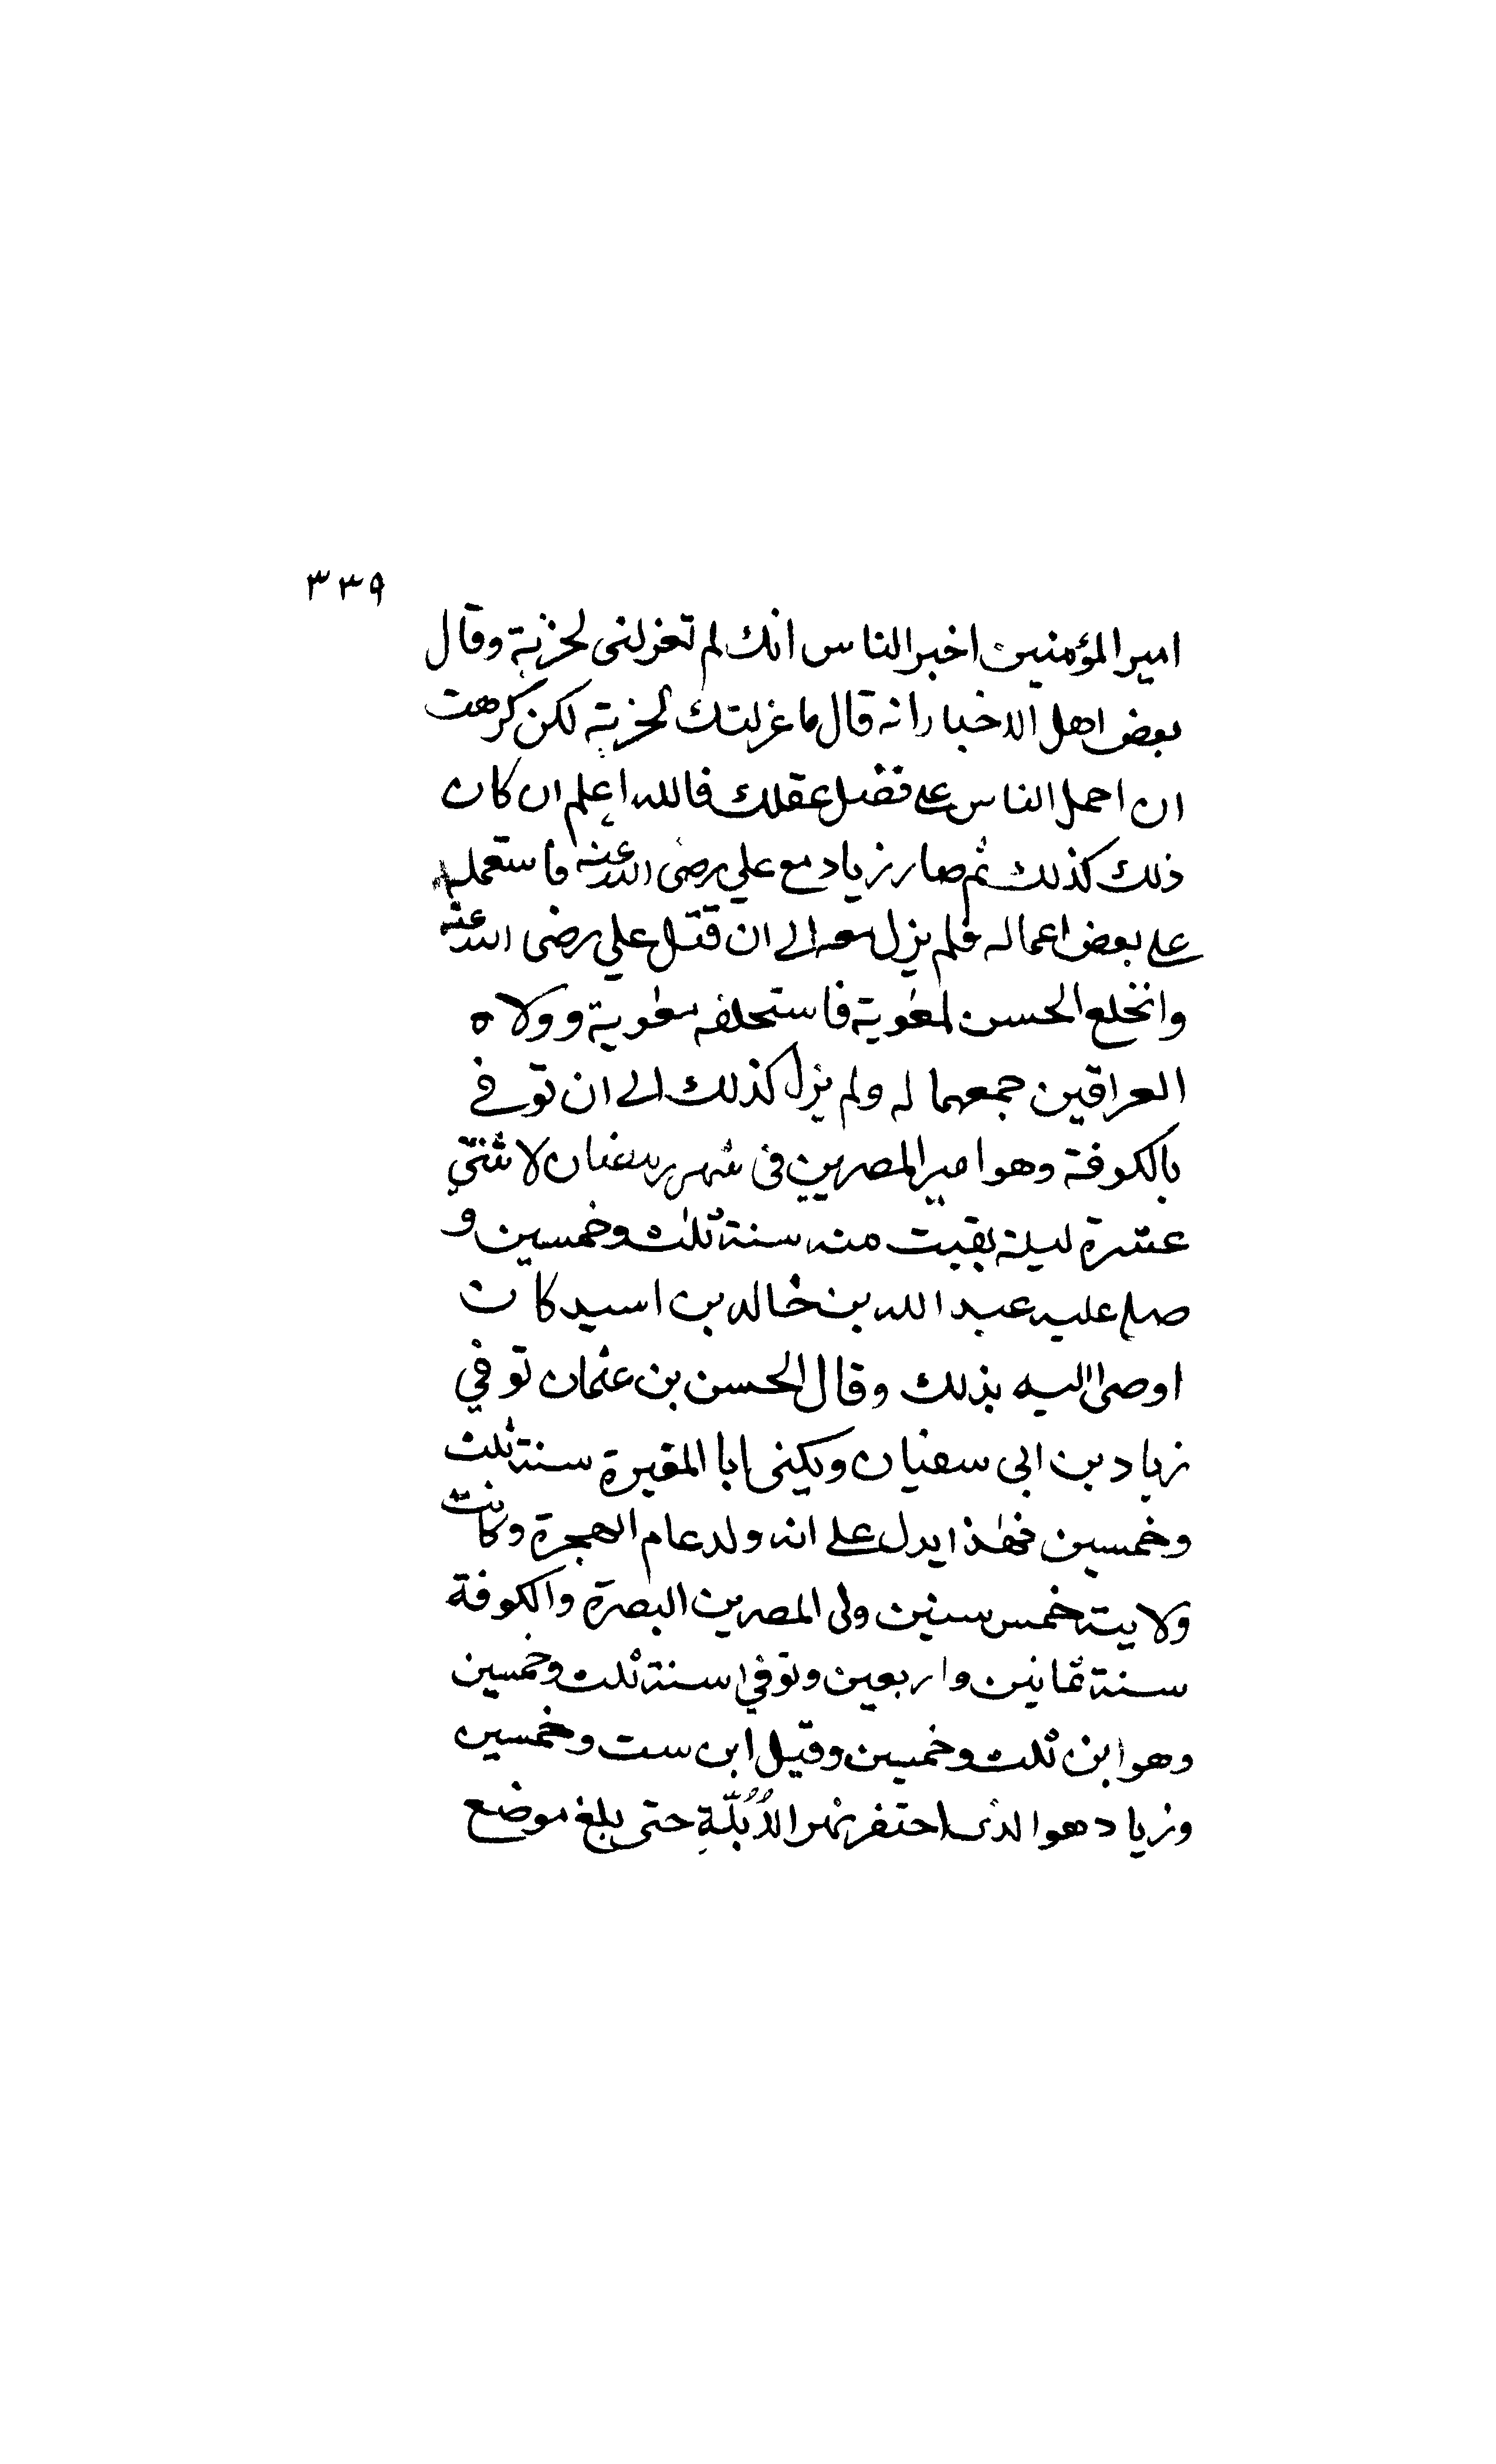 ٣٣٩
امير المؤمنين اخبر الناس انك لم تعزلنى لخزية وقال
بعض اهل الاخبار انه قال ما عزلتك لخزية لكن كرهت
ان احمل الناس على فضل عقلك فالله اعلم ان كان
ذلك كذلك ثم صار زياد مع علي رضى الله عنه فاستعمله
على بعض اعماله فلم يزل معه الى ان قتل علي رضى الله عنه
وانخلع الحسن لمعوية فاستحلفه معوية وولاه
العراقين جمعهما له ولم يزل كذلك الى ان توفي
بالكوفة وهو امير المصرين فى شهر رمضان لاثنتي
عشرة ليلة بقيت منه سنة ثلث وخمسين و
صلى عليه عبد الله بن خالد بن اسيد كان
اوصى اليه بذلك وقال الحسن بن عثمان توفي
زياد بن ابى سفيان ويكنى ابا المغيرة سنة ثلث
وخمسين فهذا يدل على انه ولد عام الهجرة وكانت
ولايته خمس سنين ولى المصرين البصرة والكوفة
سنة ثمانين واربعين وتوفي سنة ثلث وخمسين
وهو ابن ثلث وخمسين وقيل ابن ست وخمسين
وزياد هو الذى احتفر نهر الأُبُلَّةِ حتى بلغ موضع